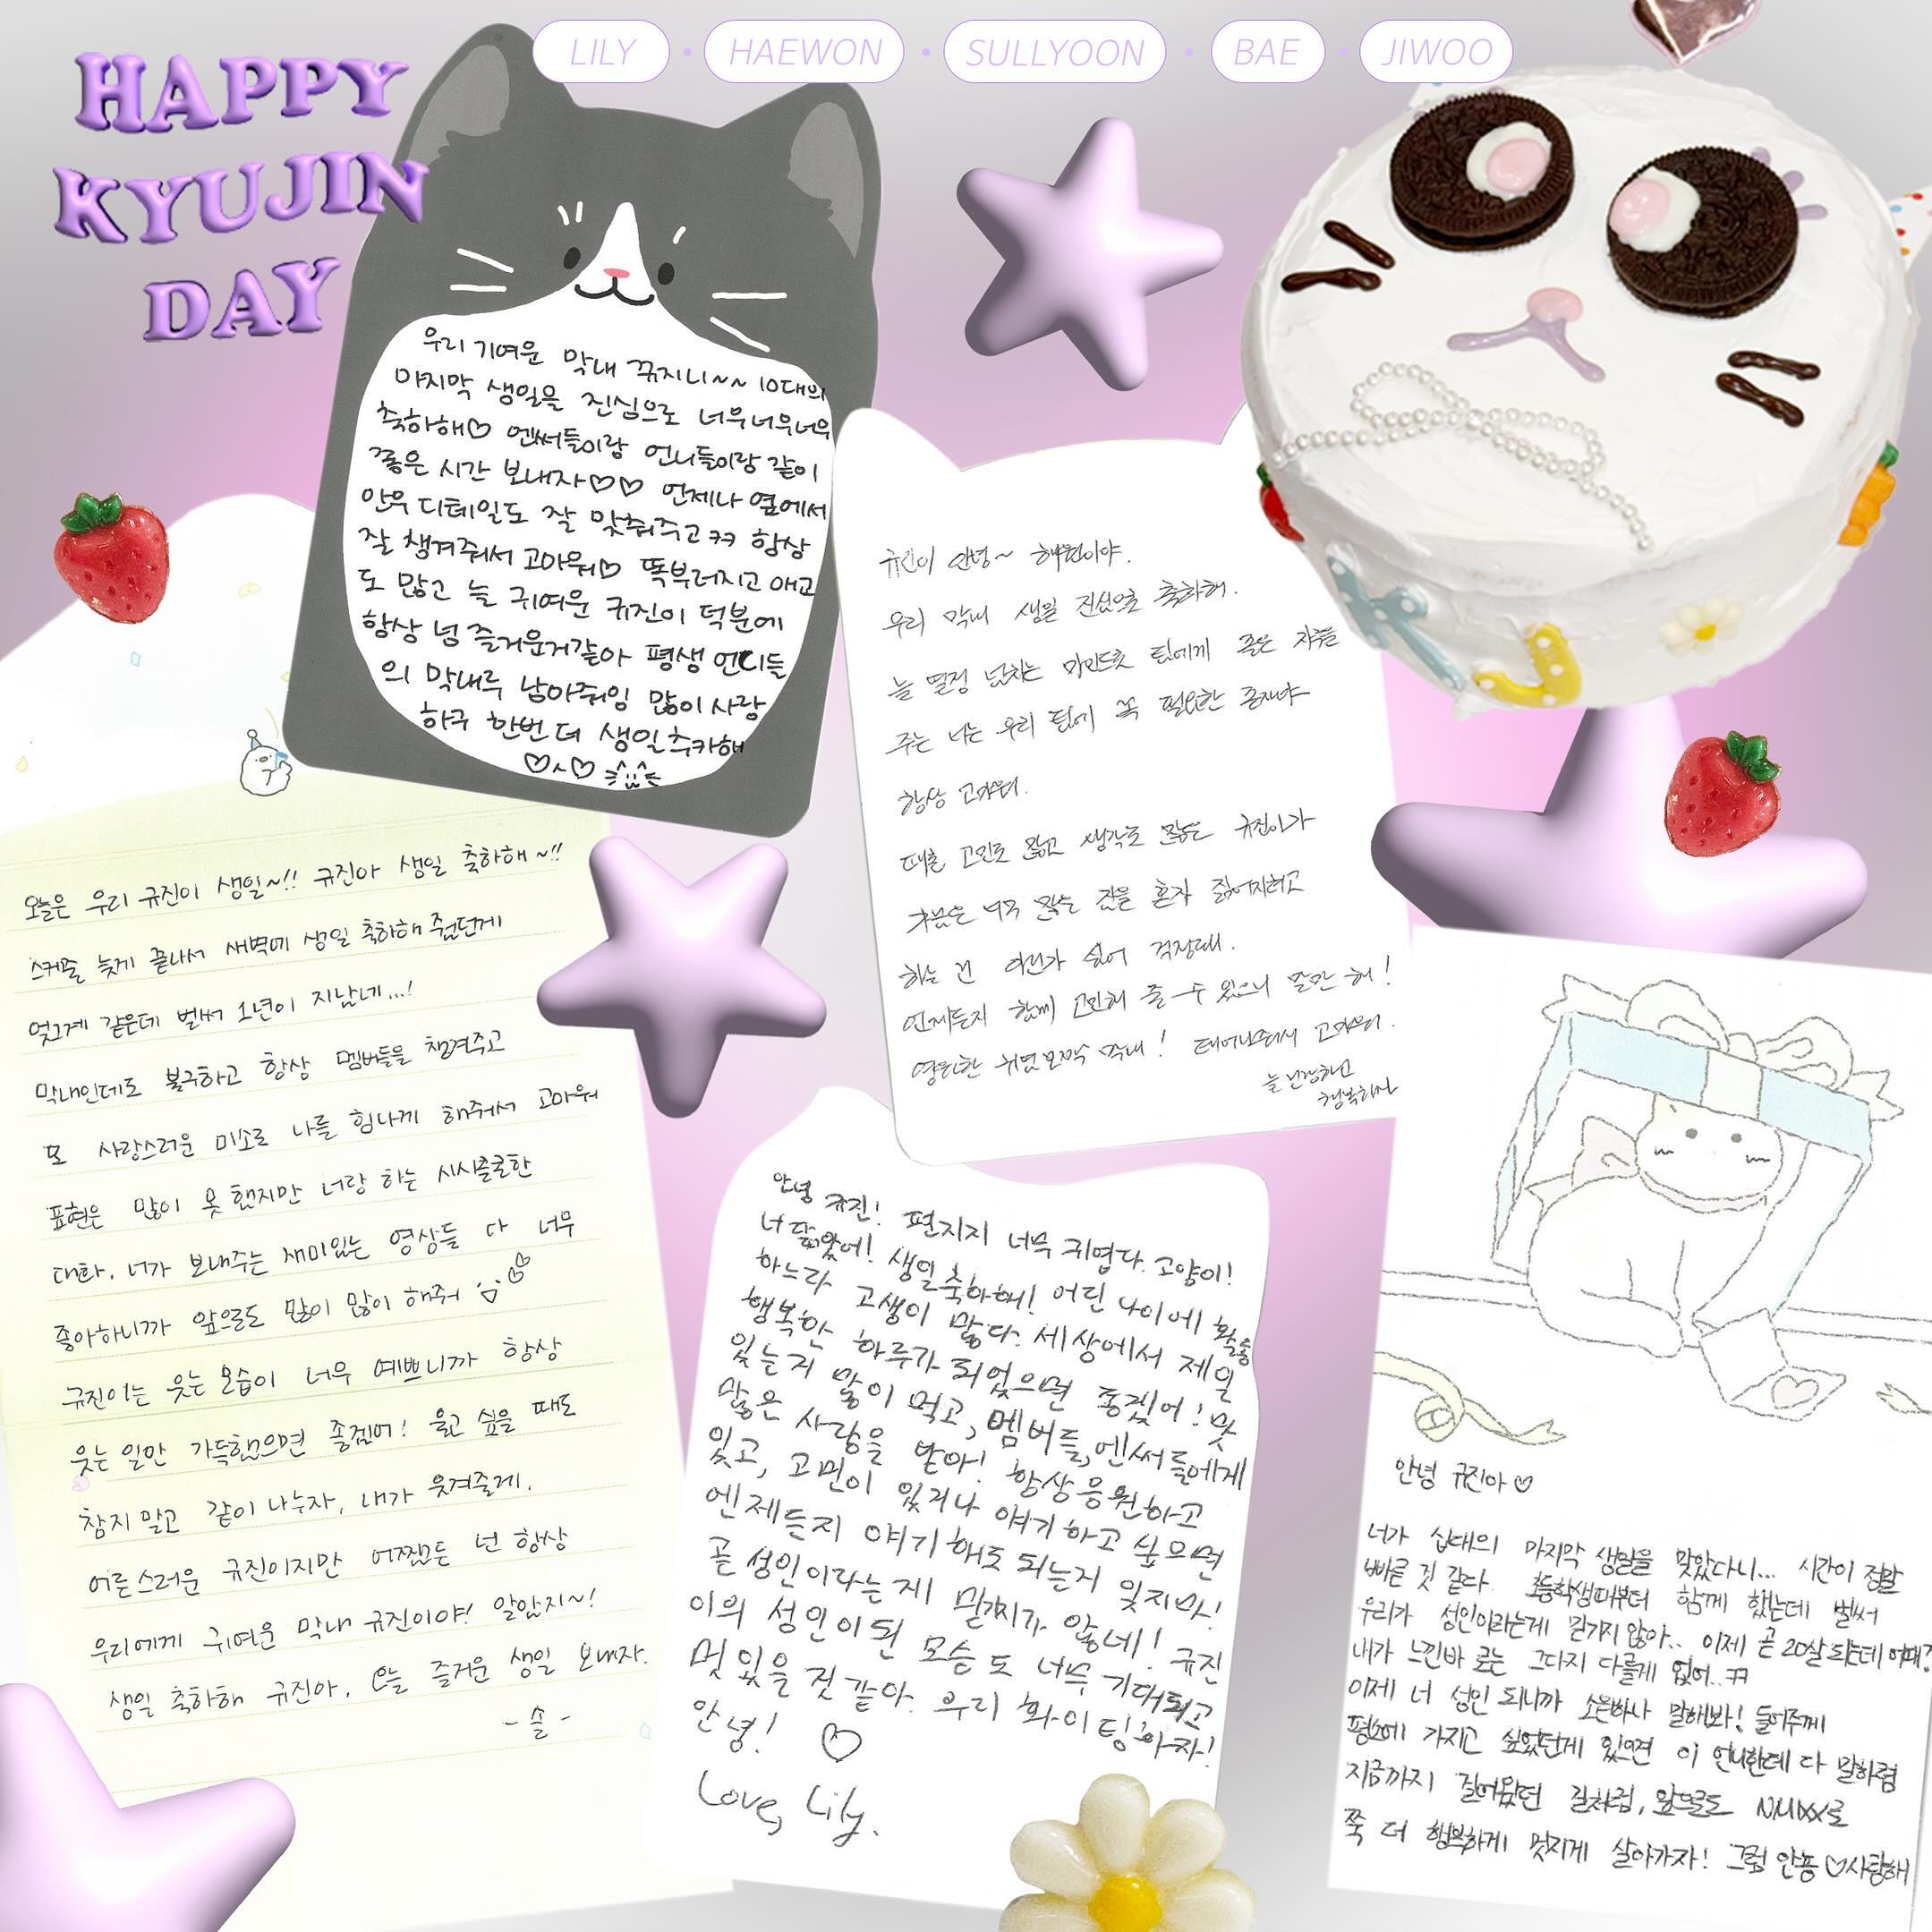 HAPPY
KYUJIN
DAY
LILY • HAEWON • SULLYOON • BAE • JIWOO
우리 기여운 막내 뀪지니~~ 10대의
마지막 생일을 진심으로 너우너우너우
축하해♡ 엔써들이랑 언니들이랑 같이
좋은 시간 보내자♡♡ 언제나 옆에서
안무 디테일도 잘 맞춰주고 ㅋㅋ 항상
잘 챙겨줘서 고마워♡ 똑부러지고 애교
도 많고 늘 귀여운 규진이 덕분에
항상 넘 즐거운거같아 평생 언니들
의 막내루 남아줘잉 많이 사랑
하구 한번 더 생일추카해
♡~♡
규진이 안녕~ 해원이야.
우리 막내 생일 진심으로 축하해.
늘 열정 넘치는 마인드로 팀에게 좋은 자극을
주는 너는 우리 팀에 꼭 필요한 존재야
항상 고마워.
때론 고민도 많고 생각도 많은 규진이가
너무 많은 것을 혼자 짊어지려고
하는 건 아닌가 싶어 걱정돼.
언제든지 함께 고민해 줄 수 있으니 말만 해!
영원한 귀염뽀짝 막내! 태어나줘서 고마워.
늘 건강하고
행복하자
K J
오늘은 우리 규진이 생일~!! 규진아 생일 축하해~!!
스케줄 늦게 끝나서 새벽에 생일 축하해 줬던게
엊그제 같은데 벌써 1년이 지났네...!
막내인데도 불구하고 항상 멤버들을 챙겨주고
또 사랑스러운 미소로 나를 힘나게 해줘서 고마워
표현은 많이 못 했지만 너랑 하는 시시콜콜한
대화, 너가 보내주는 재미있는 영상들 다 너무
좋아하니까 앞으로도 많이 많이 해줘
규진이는 웃는 모습이 너무 예쁘니까 항상
웃는 일만 가득했으면 좋겠어! 울고 싶을 때도
참지 말고 같이 나누자, 내가 웃겨줄게.
어른스러운 규진이지만 어쨌든 넌 항상
우리에게 귀여운 막내 규진이야! 알았지~!
생일 축하해 규진아, 오늘 즐거운 생일 보내자.
- 솔 -
안녕 규진! 편지지 너무 귀엽다. 고양이!
너 닮았어! 생일축하해! 어린 나이에 활동
하느라 고생이 많다. 세상에서 제일
행복한 하루가 되었으면 좋겠어! 맛
있는거 많이 먹고, 멤버들,엔써들에게
많은 사랑을 받아! 항상 응원하고
있고, 고민이 있거나 얘기하고 싶으면
엔제든지 얘기해도 되는거 잊지마!
곧 성인이라는게 믿겨지가 않네! 규진
이의 성인이된 모습도 너무 기대되고
멋있을 것 같아. 우리 화이팅하자!
안녕! ♡
Love, Lily.
안녕 규진아♡
너가 십대의 마지막 생일을 맞았다니... 시간이 정말
빠른 것 같다. 초등학생때부터 함께 했는데 벌써
우리가 성인이라는게 믿기지 않아.. 이제 곧 20살 되는데 어때?
내가 느낀바 로는 그다지 다를게 없어..ㅋㅋ
이제 너 성인 되니까 소원하나 말해봐! 들어주께
평소에 가지고 싶었던게 있으면 이 언니한테 다 말하렴
지금까지 걸어왔던 길처럼, 앞으로도 NMIXX로
쭉 더 행복하게 멋지게 살아가자! 그럼 안뇽♡사랑해